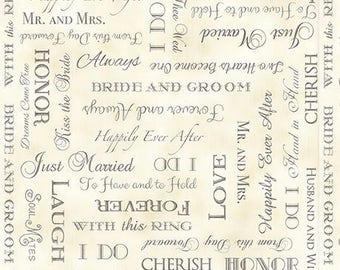 Mr. and Mrs.
From this Day Forward
Thee Wed
I DO
To Have and to Hold
Just Married
Always
Two Hearts Become One
BRIDE AND GROOM
Dreams Come True
HONOR
Kiss the Bride
Forever and Always
CHERISH
Happily Ever After
Mr. and Mrs.
Happily Ever After
Hand in Hand
WITH THIS
BRIDE AND GROOM
Just Married
I DO
LOVE
To Have and to Hold
FOREVER
WITH THIS RING
Soul Mates
LAUGH
I DO
From this Day Forward
I DO
Husband and Wife
From this Day Forward
CHERISH
HONOR
BRIDE AND GROOM
WITH THIS
BRIDE AND GROOM